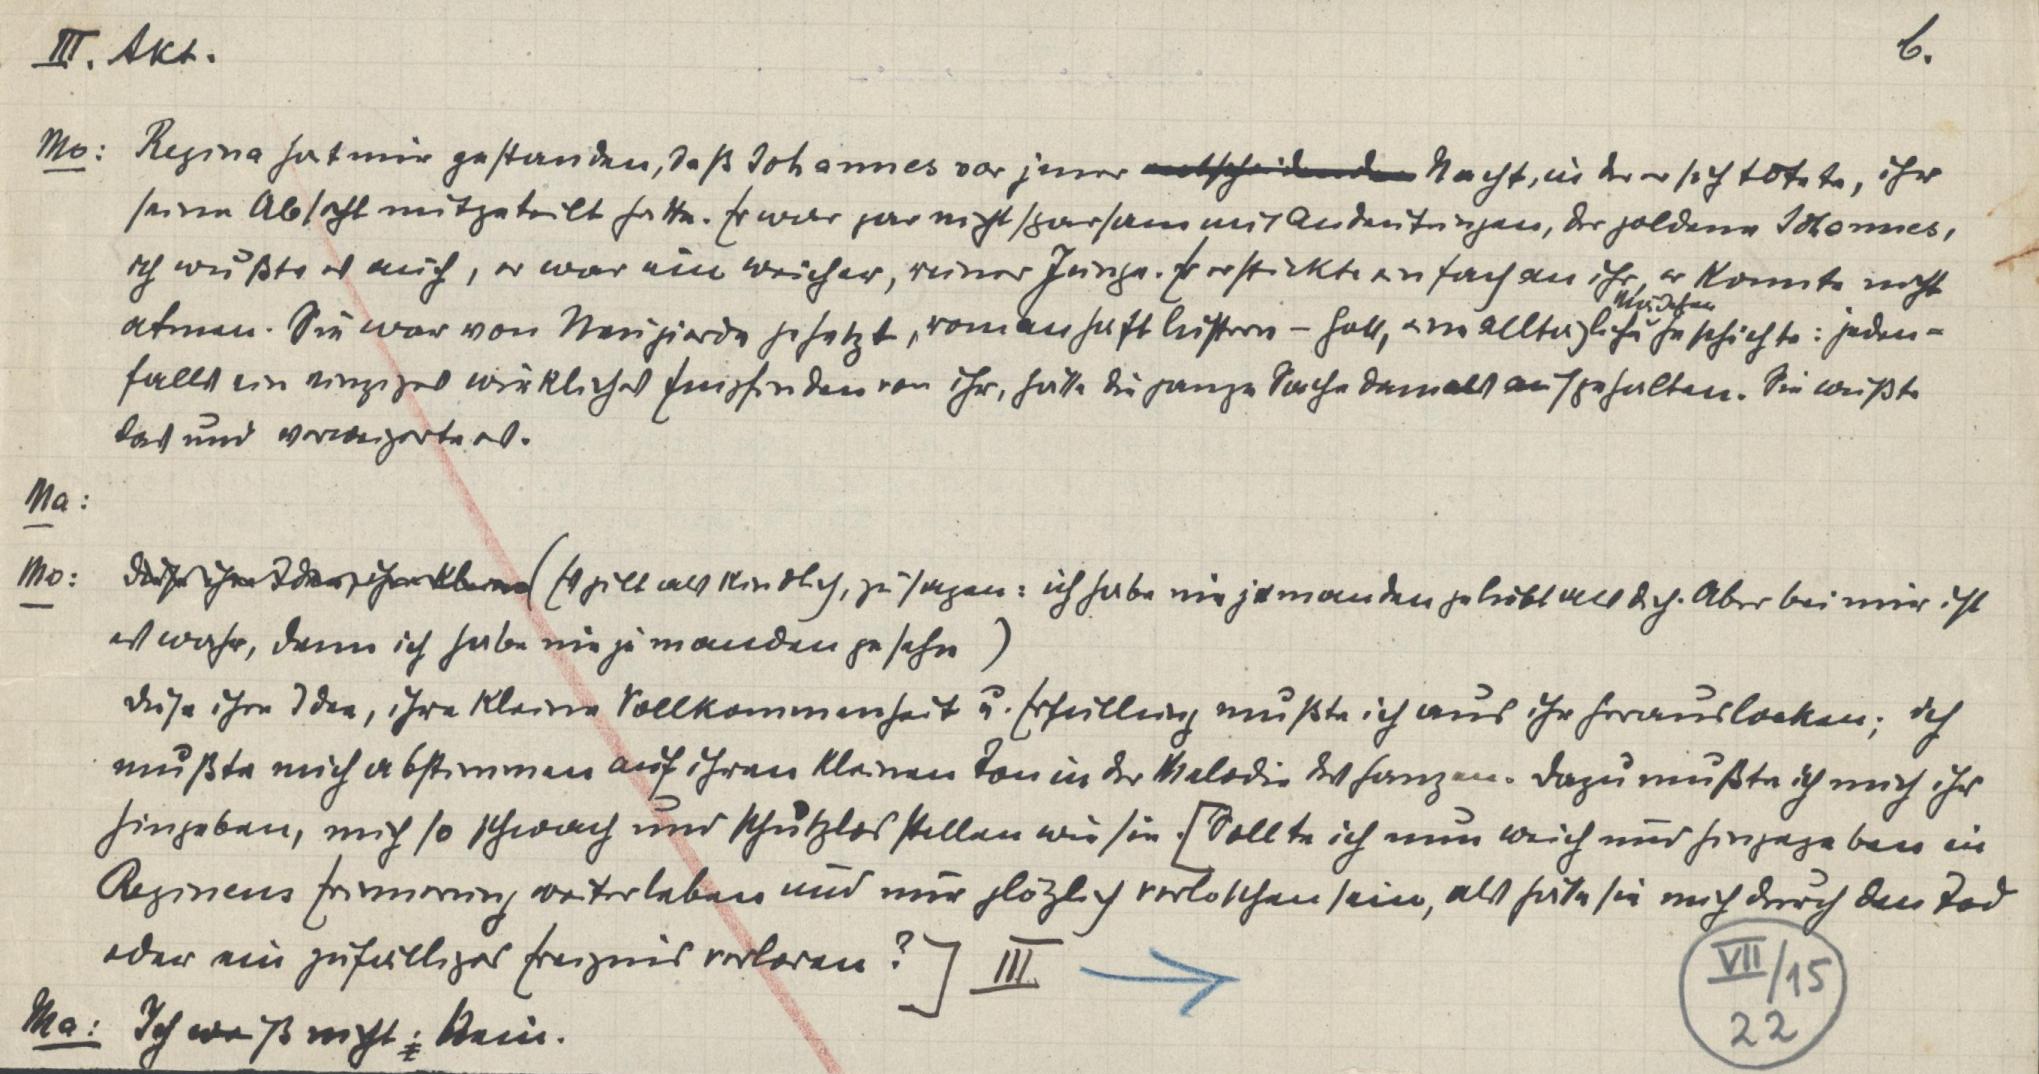 III. Akt.
6.
Mo: Regina hat mir gestanden, daß Johannes vor jener entscheidenden Nacht, in der er sich tötete, ihr
seine Absicht mitgeteilt hatte. Er war gar nicht sparsam mit Andeutungen, der goldene Johannes,
ich wußte es auch, er war ein weicher, reiner Junge. Er erstickte einfach an ihr, er konnte nicht
Mädchen
atmen. Sie war von Neugierde gehetzt, romanhaft lüstern – Gott, eine alltägliche Geschichte: jeden-
falls ein einziges wirkliches Empfinden von ihr, hätte die ganze Sache damals aufgehalten. Sie wußte
das und verweigerte es.
Ma:
Mo: Diese ihre Idee, ihre kleine (Es gilt als kindlich, zu sagen: ich habe nie jemanden geliebt als dich. Aber bei mir ist
es wahr, denn ich habe nie jemanden gesehn)
Diese ihre Idee, ihre kleine Vollkommenheit u. Erfüllung mußte ich aus ihr herauslocken; ich
mußte mich abstimmen auf ihren kleinen Ton in der Melodie des Ganzen. Dazu mußte ich mich ihr
hingeben, mich so schwach und schutzlos stellen wie sie. [Sollte ich nun weich und hingegeben in
Reginens Erinnerung weiterleben und nur plötzlich verloschen sein, als hätte sie mich durch den Tod
oder ein zufälliges Ereignis verloren?] III
VII/15
22
Ma: Ich weiß nicht: Nein.